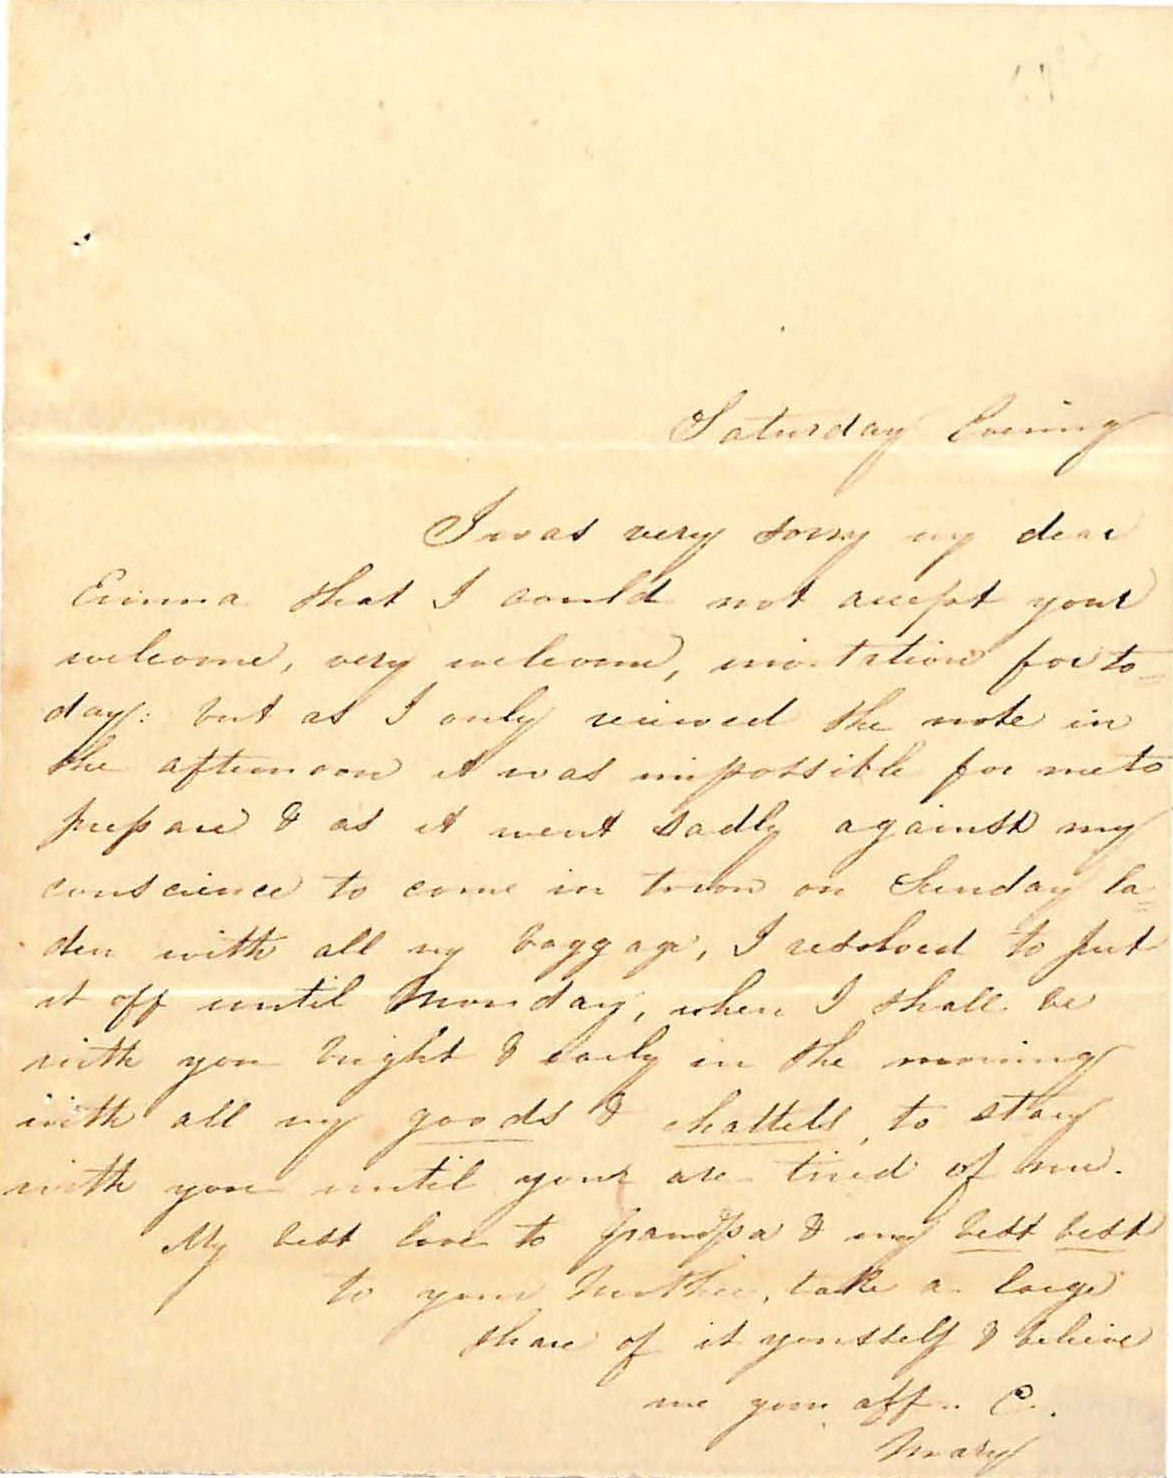 Saturday Evening
I was very sorry my dear
Emma that I could not accept your
welcome, very welcome, invitation for to=
day: but as I only recieved the note in
the afternoon it was impossible for me to
prepare & as it went sadly against my
conscience to come in town on Sunday la=
den with all my baggage, I resolved to put
it off until Monday, when I shall be
with you bright & early in the morning
with all my goods & chattels, to stay
with you until your are tired of me.
My best love to Grandpa & my best best
to your Mother, take a large
share of it yourself & believe
me your aff.. C.
Mary